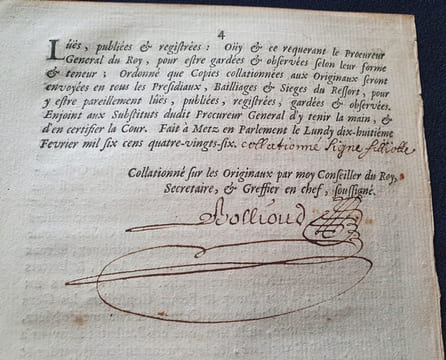 4
Lûës, publiées & registrées : Oüy & ce requerant le Procureur
General du Roy, pour estre gardées & observées selon leur forme
& teneur ; Ordonné que Copies collationnées aux Originaux seront
envoyées en tous les Presidiaux, Bailliages & Sieges du Ressort, pour
y estre pareillement lûës, publiées, registrées, gardées & observées.
Enjoint aux Substituts dudit Procureur General d'y tenir la main, &
d'en certifier la Cour. Fait à Metz en Parlement le Lundy dix-huitiéme
Fevrier mil six cens quatre-vingts-six. collationné Signé
Collationné sur les Originaux par moy Conseiller du Roy,
Secretaire, & Greffier en chef, soussigné.